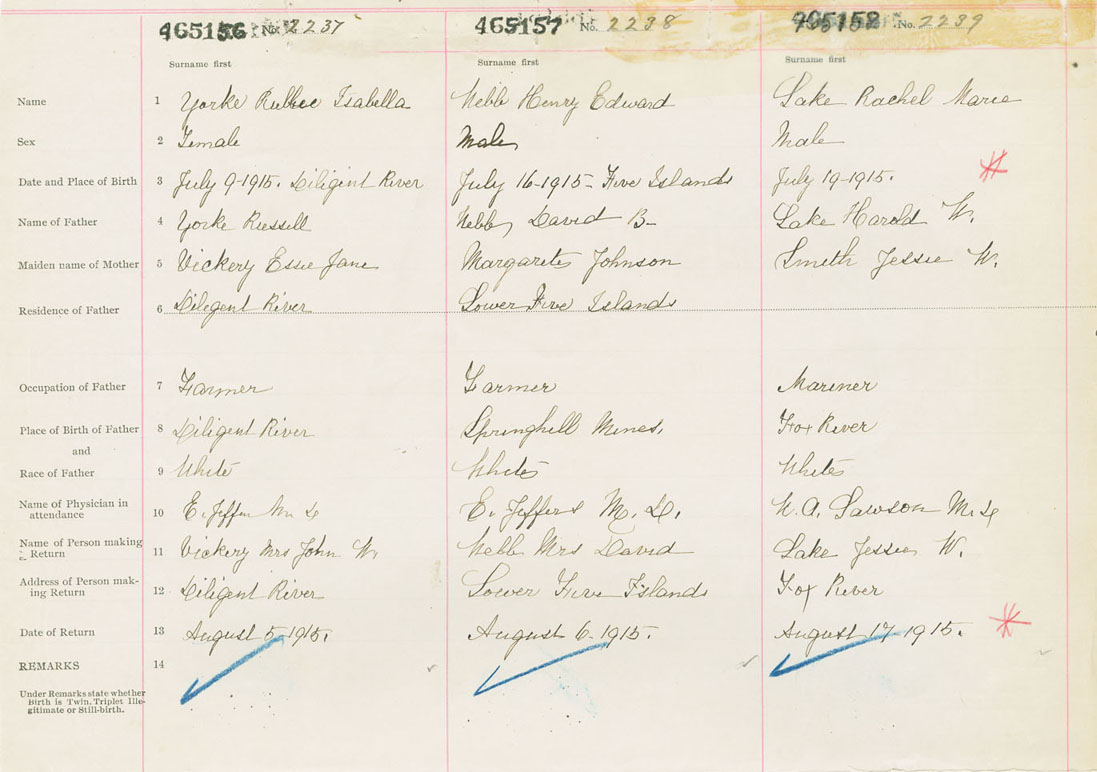 465156 No. 2237 465157 No. 2238 465158 No. 2239
Surname first Surname first Surname first
Name 1 Yorke Isabella Webb Henry Edward Lake Rachel Marie
Sex 2 Female Male Male
Date and Place of Birth 3 July 9-1915. Diligent River July 16-1915- Five Islands July 19-1915.
Name of Father 4 Yorke Russell Webb, David B- Lake Harold W.
Maiden name of Mother 5 Vickery Essie Jane Margaret Johnson Smith Jessie W.
Residence of Father 6 Diligent River Lower Five Islands
Occupation of Father 7 Farmer Farmer Mariner
Place of Birth of Father 8 Diligent River Springhill Mines. Fox River
and
Race of Father 9 White White White
Name of Physician in
attendance 10 E. Jeffers M. D. E. Jeffers M. D. M.D
Name of Person making
Return 11 Vickery Mrs John W. Webb Mrs David Lake Jessie W.
Address of Person mak-
ing Return 12 Diligent River Lower Five Islands Fox River
Date of Return 13 August 5-1915. August 6-1915. August 17-1915.
REMARKS 14
Under Remarks state whether
Birth is Twin, Triplet Ille-
gitimate or Still-birth.